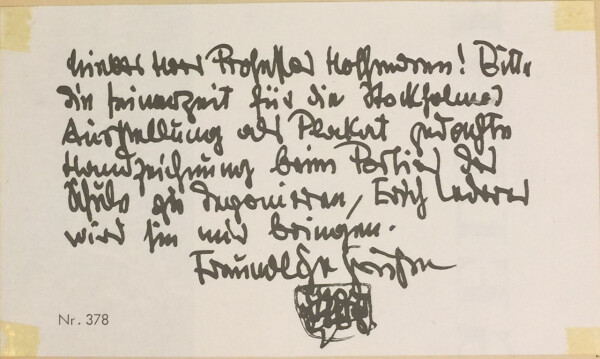 Lieber Herr Professor Hoffmann! Bitte
die seinerzeit für die Stockholmer
Ausstellung als Plakat gedachte
Handzeichnung beim Portier der
Schule zu deponieren, Erich Lederer
wird sie mir bringen.
Freundl
Nr. 378